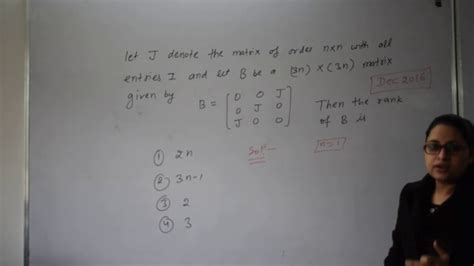 let J denote the matrix of order n×n with all
entries 1 and let B be a (3n) × (3n) matrix
given by
Dec 2016
B = [ 0 0 J
0 J 0
J 0 0 ]
Then the rank
of B is
① 2n
② 3n-1
③ 2
④ 3
Sol-
n=1